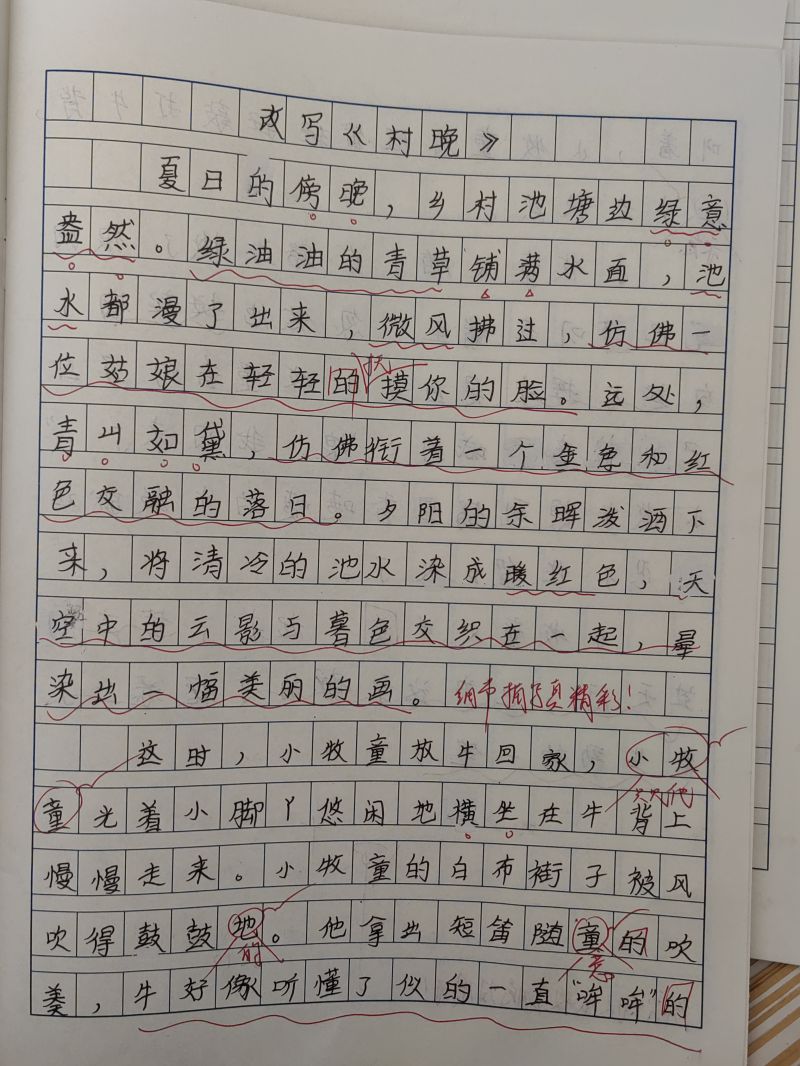 改写《村晚》
夏日的傍晚，乡村池塘边绿意
盎然。绿油油的青草铺满水面，池
水都漫了出来，微风拂过，仿佛一
位姑娘在轻轻的摸你的脸。远处，
抚
青山如黛，仿佛衔着一个金色和红
色交融的落日。夕阳的余晖泼洒下
来，将清冷的池水染成暖红色，天
空中的云影与暮色交织在一起，晕
染出一幅美丽的画。
细节描写真精彩！
这时，小牧童放牛回家，小牧
童光着小脚丫悠闲地横坐在牛背上
慢慢走来。小牧童的白布衫子被风
吹得鼓鼓地。他拿出短笛随童的吹
的
意
奏，牛好像听懂了似的一直“哞哞”的